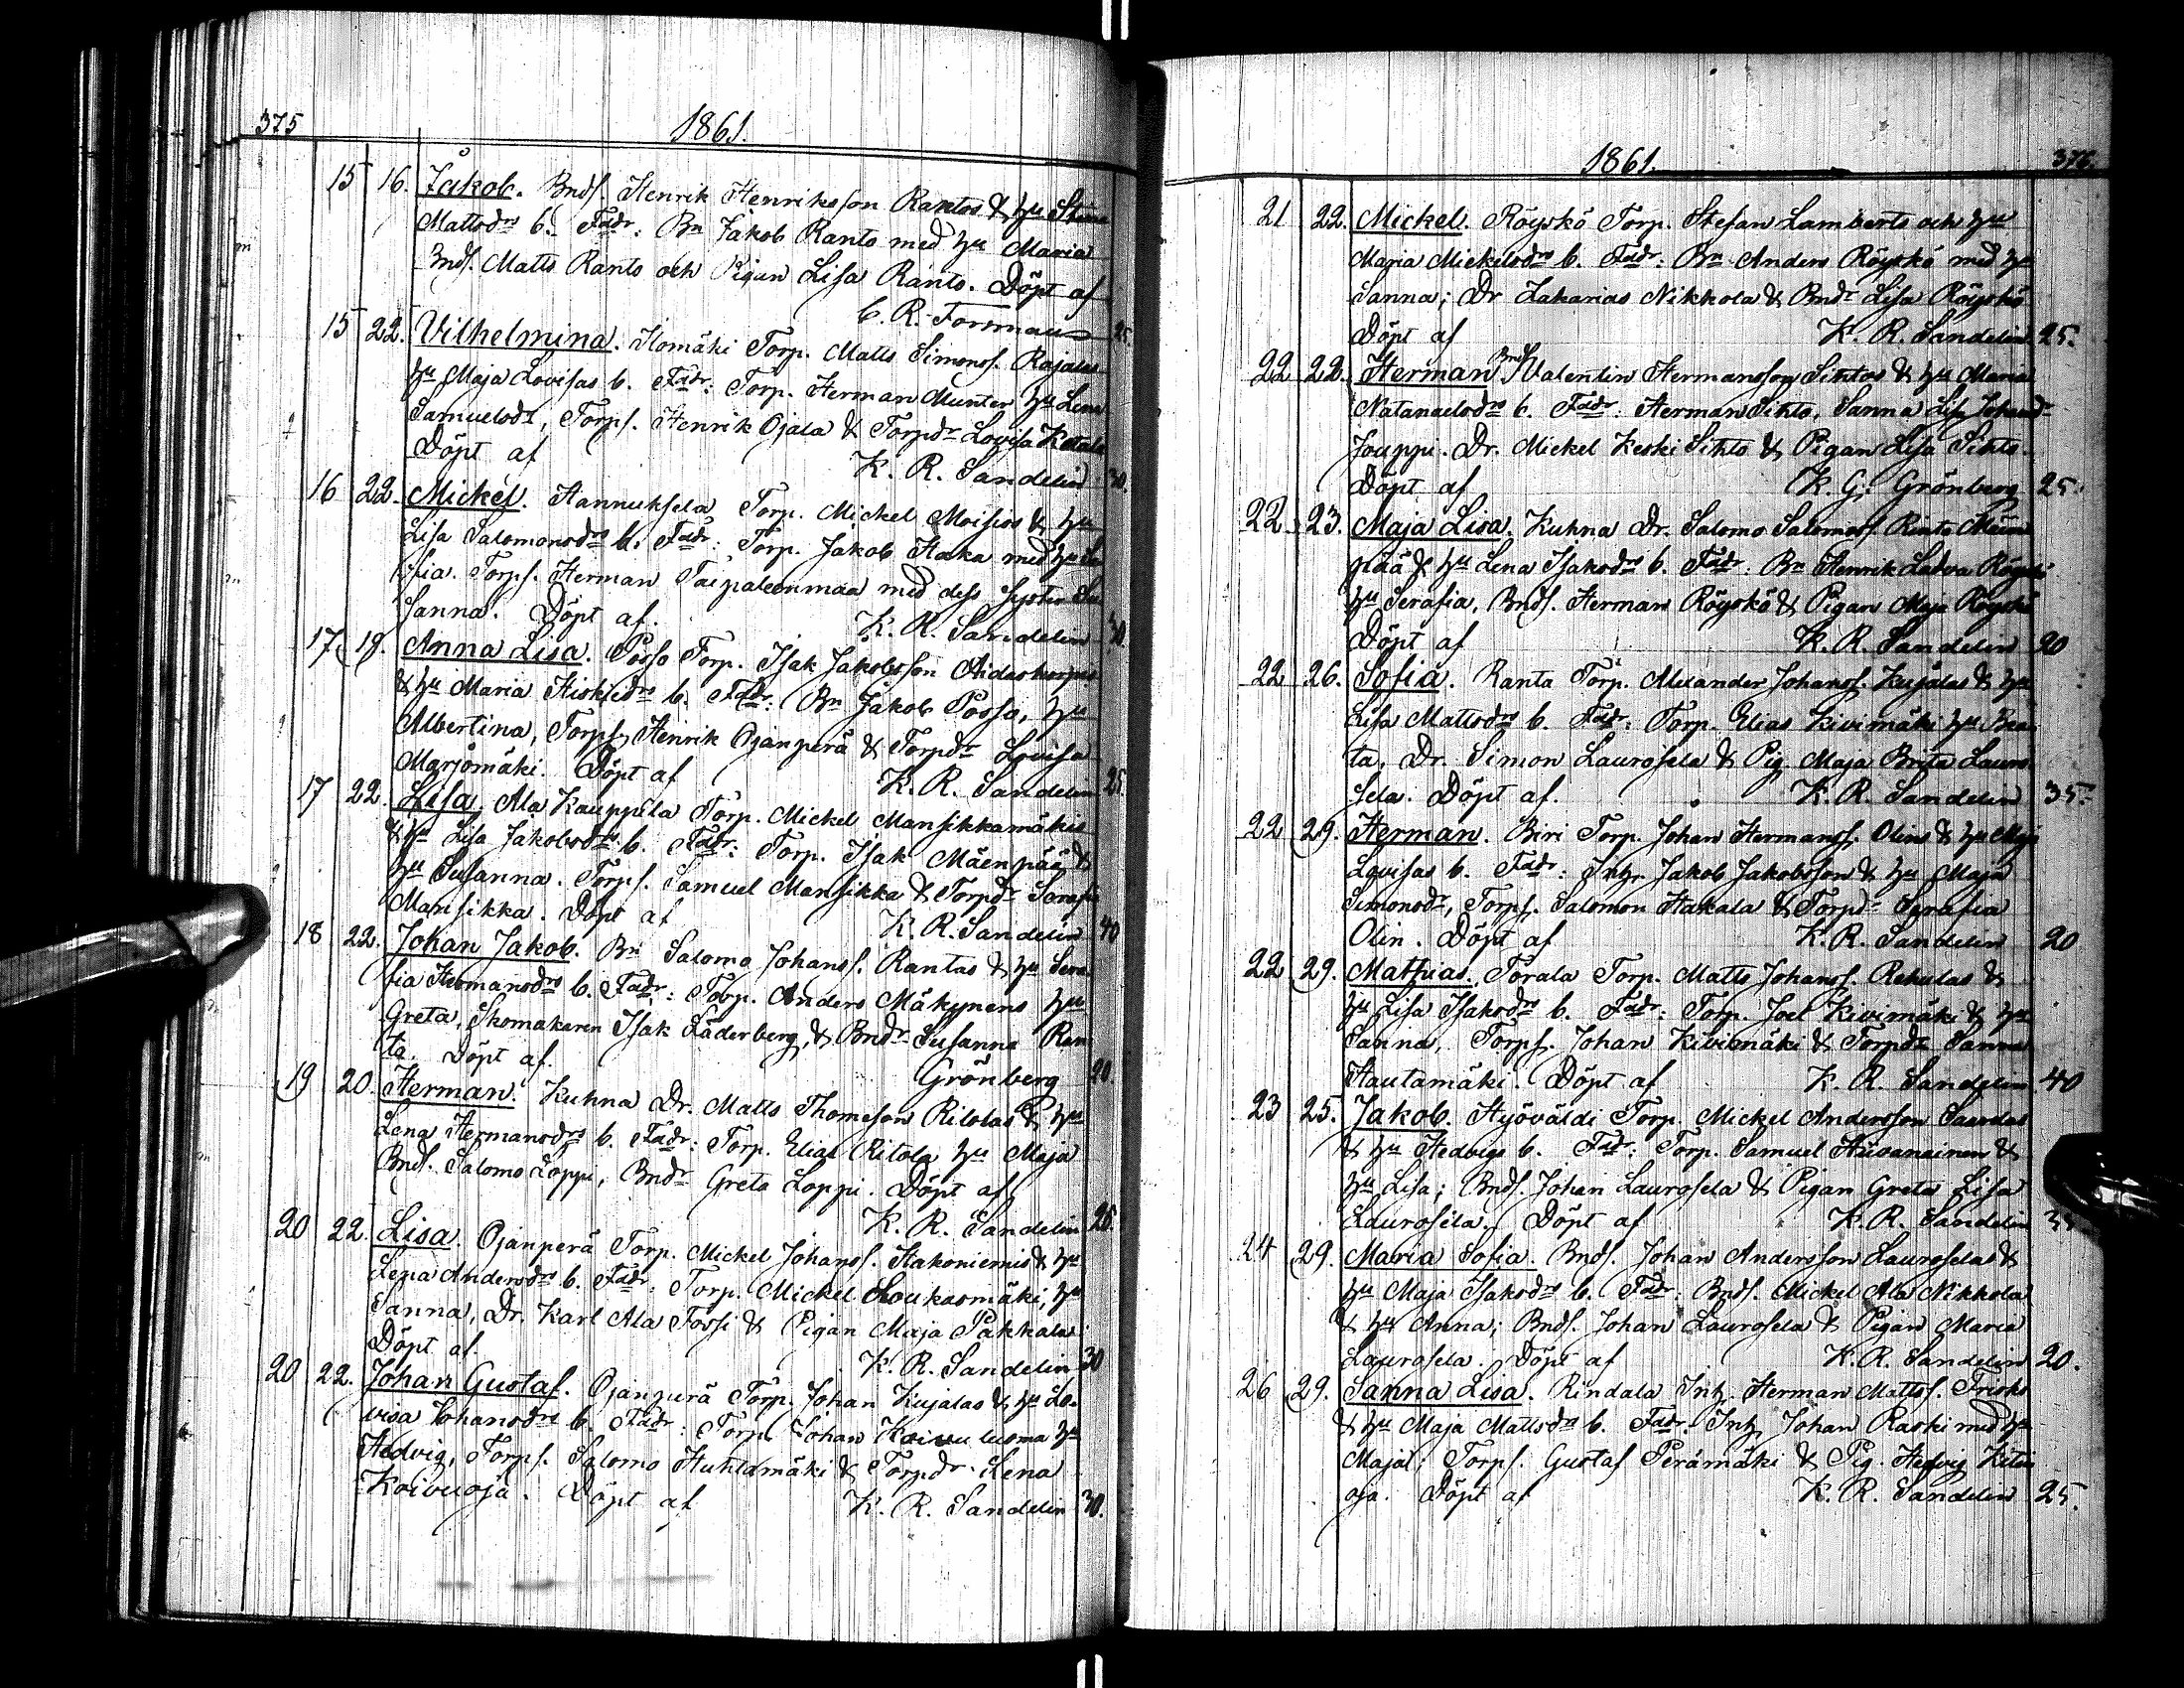 375
1861.
15 16. Jakob. Bnds. Henrik Henriksson Rantos & hu Stina
Mattsdrs b. Fadr: Bn Jakob Ranto med hu Maria
Bnds. Matts Ranto och Pigan Lisa Ranto. Döpt af
C. R. Forsman 25.
15 22. Vilhelmina. Ilomäki Torp. Matts Simonss. Rajalas
hu Maja Lovisas b. Fadr: Torp. Herman Munter hu Lena
Samuelsdr, Torps. Henrik Ojala & Torpdr Lovisa Ketola
Döpt af K. R. Sandelin 30.
16 22. Mickel. Hannuksela Torp. Mickel Moisios & hu
Lisa Salomonsdrs b. Fadr: Torp. Jakob Haka med hu So-
fia. Torps. Herman Taipaleenmaa med dess syster Su-
sanna. Döpt af. K. R. Sandelin 30.
17 19. Anna Lisa. Posso Torp. Isak Jakobsson Aidaskorpis
& hu Maria b. Fadr: Bn Jakob Posso, hu
Albertina, Torps. Henrik Ojanperä & Torpdr Lovisa
Marjomäki. Döpt af K. R. Sandelin 25.
17 22. Lisa. Ala Kauppila Torp. Mickel Mansikkamäkis
& hu Lisa Jakobsdrs b. Fadr: Torp. Isak Mäenpää &
hu Susanna. Torps. Samuel Mansikka & Torpdr Serafia
Mansikka. Döpt af K. R. Sandelin 40
18 22. Johan Jakob. Bn Salomo Johanss. Rantas & hu Sera-
fia Hermansdrs b. Fadr: Torp. Anders Mäkynens hu
Greta, Skomakaren Isak Läderberg, & Bndr Susanna Ran-
ta. Döpt af. Grönberg 20.
19 20. Herman. Kuhna Dr. Matts Thomeson Ritolas & hu
Lena Hermansdrs b. Fadr: Torp. Elias Ritola hu Maja
Bnds. Salomo Loppi, Bndr Greta Loppi. Döpt af
K. R. Sandelin 26.
20 22. Lisa. Ojanperä Torp. Mickel Johanss. Hakoniemis & hu
Lena Andersdrs b. Fadr: Torp. Mickel Loukasmäki, hu
Sanna, Dr. Karl Ala Fossi & Pigan Maja Pakkala
Döpt af. K. R. Sandelin 30
20 22. Johan Gustaf. Ojanperä Torp. Johan Kujalas & hu Lo-
visa Johansdrs b. Fadr: Torp. Johan Koivuluoma hu
Hedvig, Torps. Salomo Huhtamäki & Torpdr Lena
Koivuoja. Döpt af K. R. Sandelin 30.
1861. 376.
21 22. Mickel. Röyskö Torp. Stefan Lamberts och hu
Maria Mickelsdrs b. Fadr: Bn Anders Röyskö med hu
Sanna; Dr Zakarias Nikkola & Bndr Lisa Röyskö
Döpt af K. R. Sandelin 25.
22 22. Herman Bnds Valentin Hermansson Sihtos & hu Maria
Natanaelsdrs b. Fadr: Herman Sihto, Sanna Lis. Johansdr
Jouppi. Dr. Mickel Keski Sihto & Pigan Lisa Sihto.
Döpt af K. G. Grönberg 25.
22 23. Maja Lisa. Kuhna Dr. Salomo Salomss. Rinto Mäen-
pää & hu Lena Isaksdrs b. Fadr: Bn Henrik Ladva Röyskö
hu Serafia, Bnds. Herman Röyskö & Pigan Maja Röyskö
Döpt af K. R. Sandelin 20
22 26. Sofia. Ranta Torp. Alexander Johanss. Kujalas & hu
Lisa Mattsdrs b. Fadr: Torp. Elias Kivimäki hu Bea-
ta, Dr. Simon Laurosela & Pig. Maja Brita Lauro-
sela. Döpt af. K. R. Sandelin 35.
22 29. Herman. Biri Torp. Johan Hermanss. Olins & hu Maja
Lovisas b. Fadr: Inhr Jakob Jakobsson & hu Maja
Simonsdr, Torps. Salomon Hakala & Torpdr Serafia
Olin. Döpt af K. R. Sandelin 20
22 29. Mathias. Torala Torp. Matts Johanss. Rekulas &
hu Lisa Isaksdrs b. Fadr: Torp. Joel Kivimäki & hu
Sanna, Torps. Johan Kivimäki & Torpdr Sanna
Hautamäki. Döpt af K. R. Sandelin 40
23 25. Jakob. Hyöväldi Torp. Mickel Andersson Saardas
& hu Hedvigs b. Fadr: Torp. Samuel Hisvanainen &
hu Lisa; Bnds. Johan Laurosela & Pigan Greta Lisa
Laurosela. Döpt af K. R. Sandelin 35
24 29. Maria Sofia. Bnds. Johan Andersson Lauroselas &
hu Maja Isaksdrs b. Fadr: Bnds. Mickel Ala Nikkola
& hu Anna; Bnds. Johan Laurosela & Pigan Maria
Laurosela. Döpt af K. R. Sandelin 20.
26 29. Sanna Lisa. Rindala Inh. Herman Mattss. Frisks
& hu Maja Mattsdrs b. Fadr: Inh. Johan Raski med hu
Maja; Torps. Gustaf Perämäki & Pig. Hedvig Kitin-
oja. Döpt af K. R. Sandelin 25.